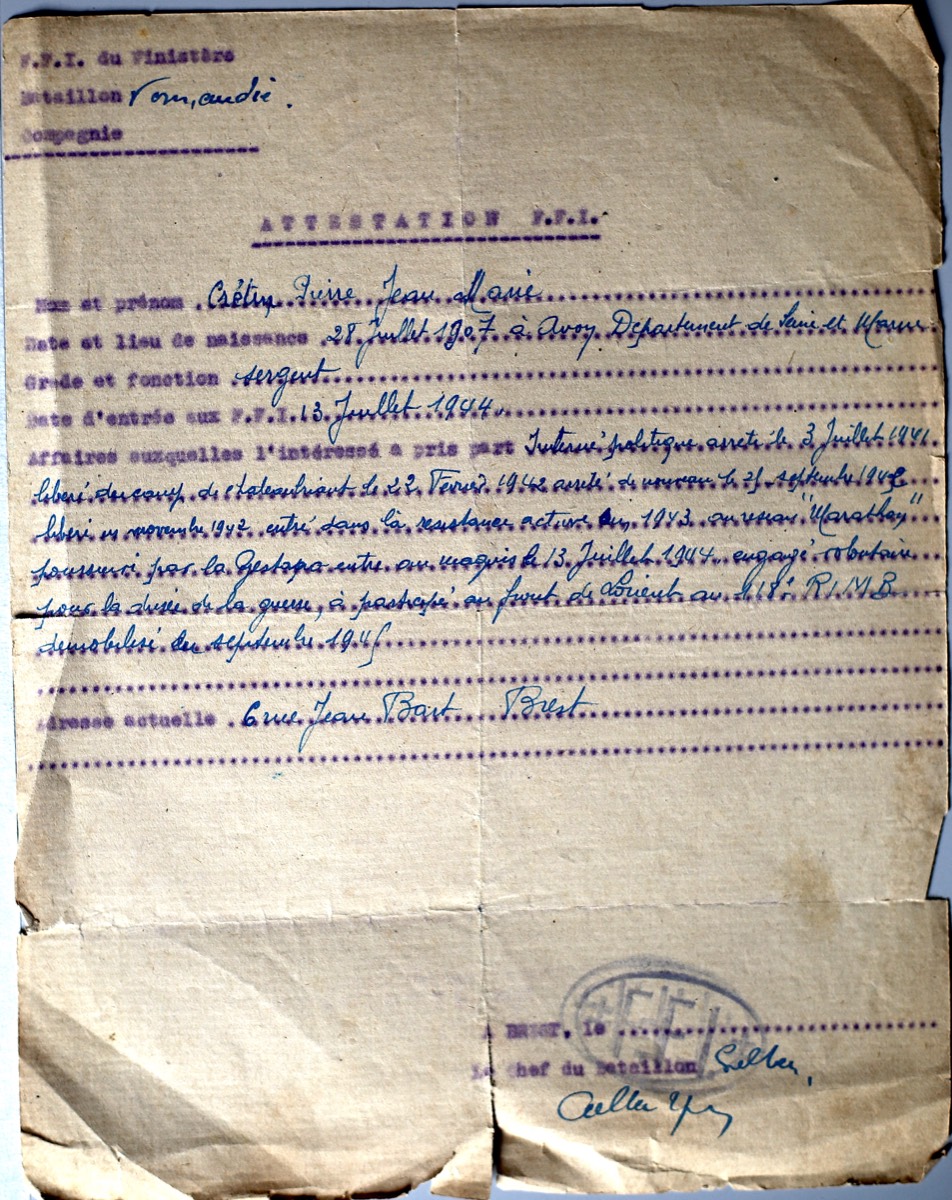 F.F.I. du Finistère
Bataillon Normandie.
Compagnie
ATTESTATION F.F.I.
Nom et prénom Crétin Pierre Jean Marie
Date et lieu de naissance 28 Juillet 1907 à Avon Département de Seine et Marne
Grade et fonction sergent
Date d'entrés aux F.F.I. 13 Juillet 1944.
Affaires auxquelles l'intéressé a pris part Interné politique arreté le 3 Juillet 1941
liberé du camp de chateaubriant le 23 Fevrier 1942 arreté de nouveau le 25 septembre 1942
liberé en novembre 1942 entré dans la resistance active en 1943 au reseau "Marathon"
poursuivi par la Gestapo entre au maquis le 13 Juillet 1944 engagé volontaire
pour la durée de la guerre, à participé au front de Lorient au 118e R.I.M.B
demobilisé en septembre 1945
Adresse actuelle 6 rue Jean Bart Brest
FFI
A BREST, le
Le Chef du Bataillon